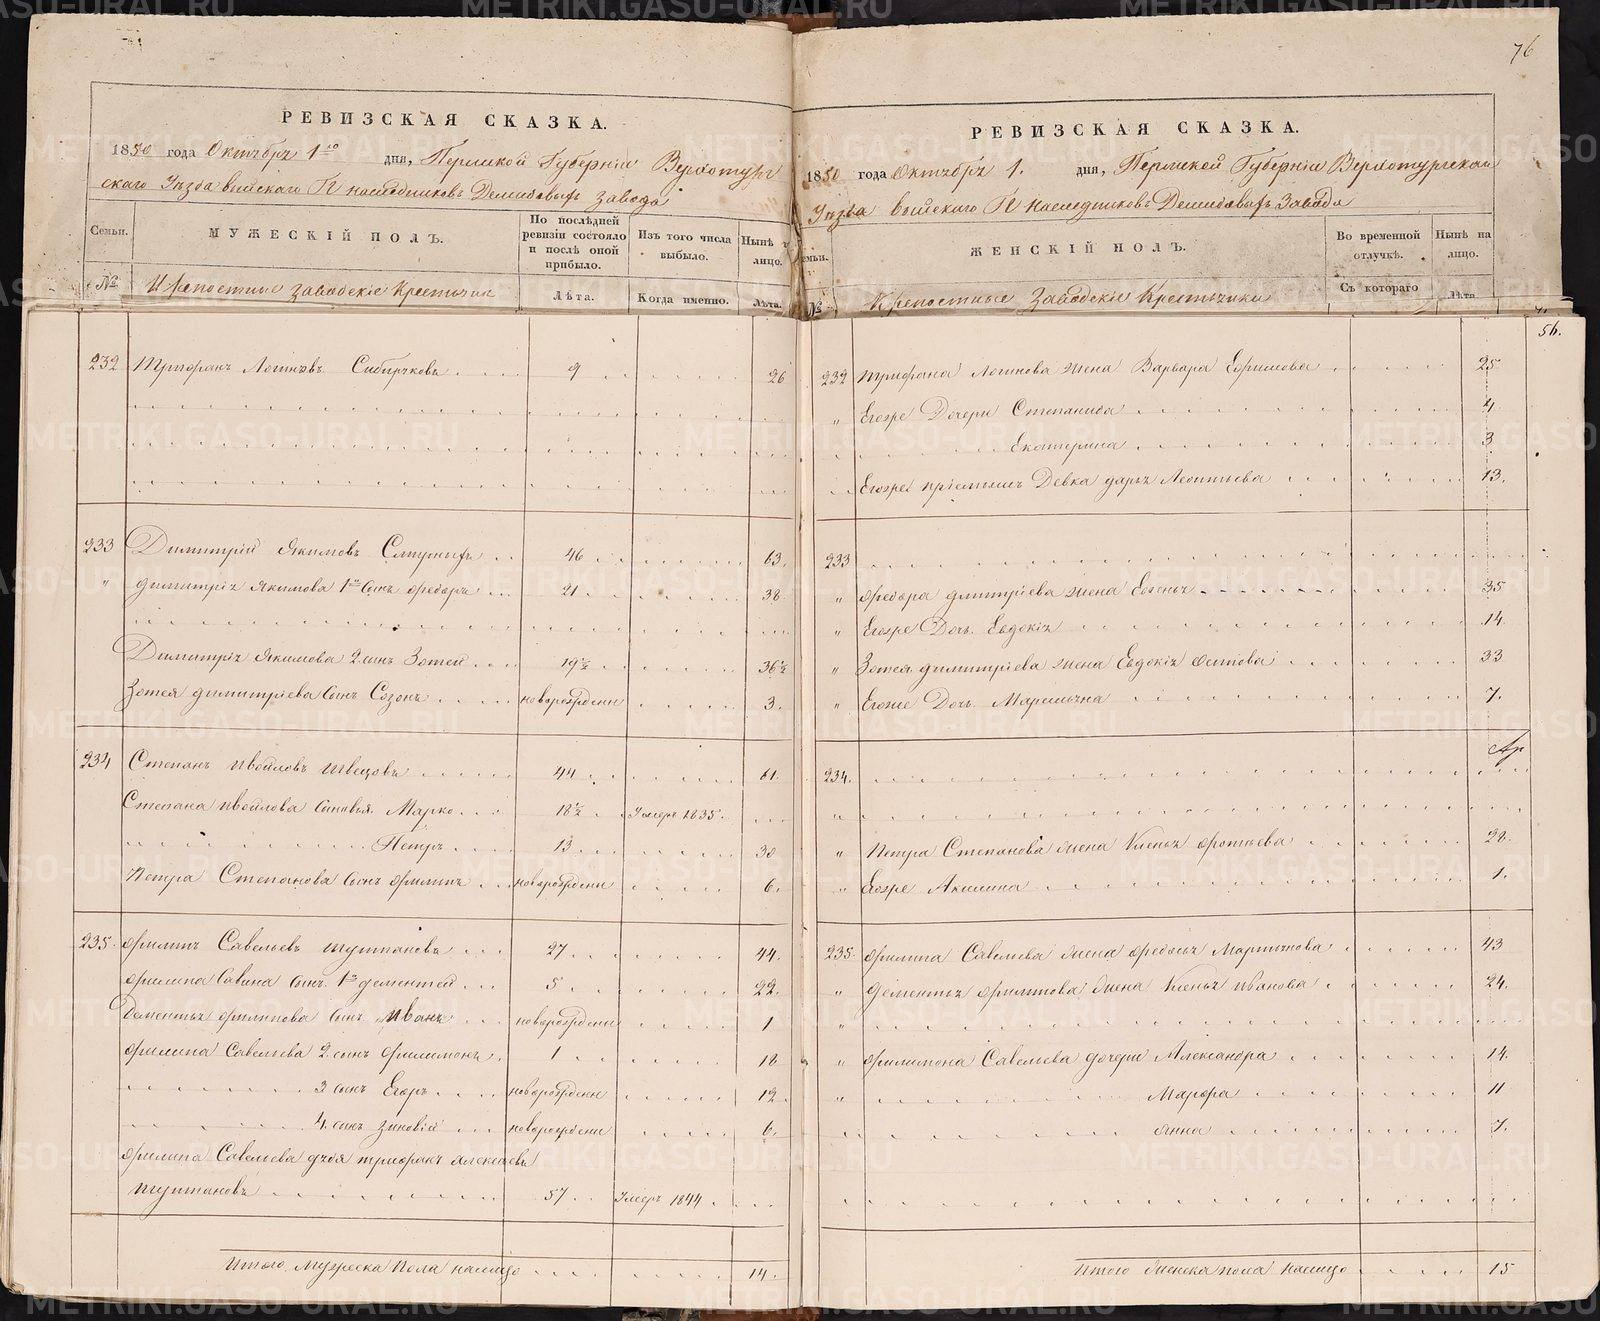 76
РЕВИЗСКАЯ СКАЗКА.
1850 года Октября 1го дня, Пермской Губернiи Верхотур
скаго Уезда Выйскаго Г. наследниковъ Демидовыхъ завода
Семьи.
МУЖЕСКIЙ ПОЛЪ.
По послѣдней ревизiи состояло и послѣ оной прибыло.
Изъ того числа выбыло.
Нынѣ на лицо.
№
Крепостные заводскiе Крестьяне
Лѣта.
Когда именно.
Лѣта.
232 Трифонъ Логиновъ Сибиряковъ 9 26
233 Димитрiй Якимовъ 46 63.
" Димитрiя Якимова 1й сынъ Федоръ 21 38
Димитрiя Якимова 2 сынъ Зотей 19½ 36½
Зотея Димитрiева сынъ Созонъ новорожденъ 3.
234 Степанъ Ивойловъ Швецовъ 44 61.
Степана Ивойлова сыновья Марко 18½ Умеръ 1835.
Петръ 13 30
Петра Степанова сынъ Филипъ новорожденъ 6.
235. Филипъ Савельевъ Шуптановъ 27 44.
Филипа Савина сынъ 1й Дементей 5 22.
Дементья Филипова сынъ Иванъ новорожденъ 1
Филипа Савельева 2 сынъ Филимонъ 1 18
3 сынъ Егоръ новорожденъ 12.
4. сынъ Зиновiй новорожденъ 6.
Филипа Савельева дядя Трифонъ Алексеевъ
Шуптановъ 57 Умеръ 1844
Итого мужеска пола налицо 14.
РЕВИЗСКАЯ СКАЗКА.
1850 года Октября 1. дня, Пермской Губернiи Верхотурскаго
Уезда Выйскаго Г. наследниковъ Демидовыхъ Завода
Семьи.
ЖЕНСКIЙ ПОЛЪ.
Во временной отлучкѣ.
Нынѣ на лицо.
№
Крепостные Заводскiе Крестьянки
Съ котораго
Лѣта.
56.
232 Трифона Логинова жена Варвара Ефимова 25
" Егоже Дочери Степанида 4
Екатерина 3
Егоже прiемышъ Девка Дарья Леонтьева 13.
233
" Федора Дмитрiева жена Евгенья 35
" Егоже Дочь Евдокiя 14
" Зотея Димитрiева жена Евдокiя Осипова 33
" Егоже Дочь Маремьяна 7.
234.
"
" Петра Степанова жена Ксенья Фотьева 28.
" Егоже Акилина 1.
235. Филипа Савельева жена Федосья Мартынова 43
" Дементья Филипова жена Ксенья Иванова 24.
"
" Филимона Савельева дочери Александра 14.
" Марфа 11
" Анна 7.
Итого женска пола налицо 15
METRIKI.GASO-URAL.RU